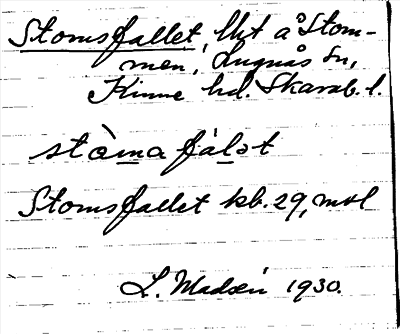 Stomsfallet, lht å Stom-
men, Lugnås sn,
Kinne hd. Skarab. l.
stòma fàlət
Stomsfallet kb. 29, msl
L. Madsén 1930.